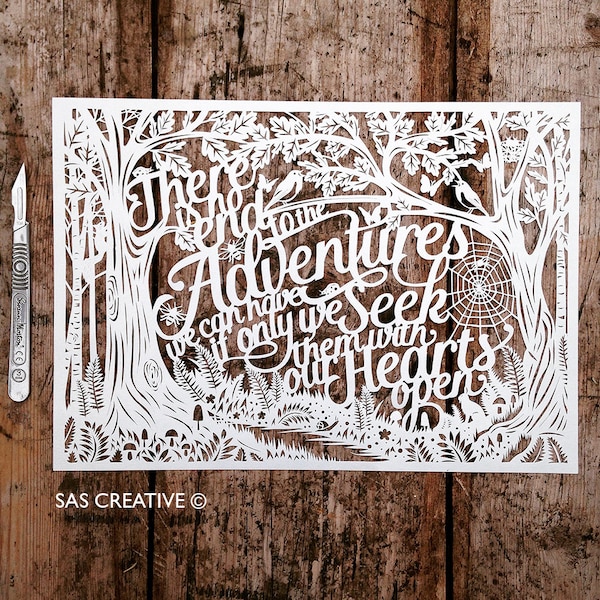 There
is no
end to the
Adventures
we can have
if only we Seek
them with
our Hearts
open
Swann-Morton
SAS CREATIVE ©